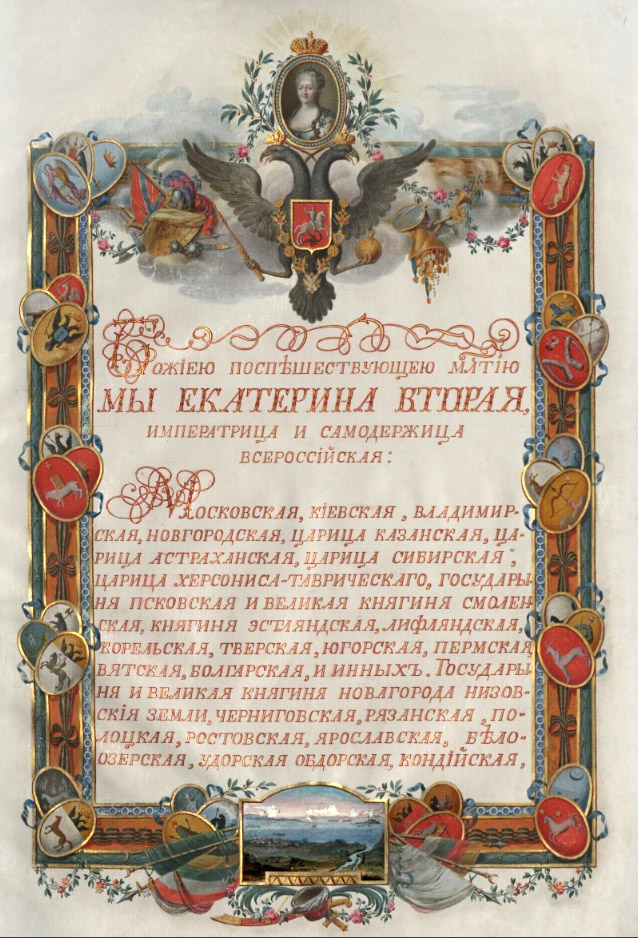 Божіею поспѣшествующею млтію
МЫ ЕКАТЕРИНА ВТОРАЯ,
ИМПЕРАТРИЦА И САМОДЕРЖИЦА
ВСЕРОССІЙСКАЯ:
МОСКОВСКАЯ, КІЕВСКАЯ, ВЛАДИМИР-
СКАЯ, НОВГОРОДСКАЯ, ЦАРИЦА КАЗАНСКАЯ, ЦА-
РИЦА АСТРАХАНСКАЯ, ЦАРИЦА СИБИРСКАЯ,
ЦАРИЦА ХЕРСОНИСА-ТАВРИЧЕСКАГО, ГОСУДАРЫ-
НЯ ПСКОВСКАЯ И ВЕЛИКАЯ КНЯГИНЯ СМОЛЕН-
СКАЯ, КНЯГИНЯ ЭСТЛЯНДСКАЯ, ЛИФЛЯНДСКАЯ,
КОРЕЛЬСКАЯ, ТВЕРСКАЯ, ЮГОРСКАЯ, ПЕРМСКАЯ
ВЯТСКАЯ, БОЛГАРСКАЯ, И ИННЫХЪ. ГОСУДАРЫ-
НЯ И ВЕЛИКАЯ КНЯГИНЯ НОВАГОРОДА НИЗОВ-
СКІЯ ЗЕМЛИ, ЧЕРНИГОВСКАЯ, РЯЗАНСКАЯ, ПО-
ЛОЦКАЯ, РОСТОВСКАЯ, ЯРОСЛАВСКАЯ, БѢЛО-
ОЗЕРСКАЯ, УДОРСКАЯ ОБДОРСКАЯ, КОНДІЙСКАЯ,